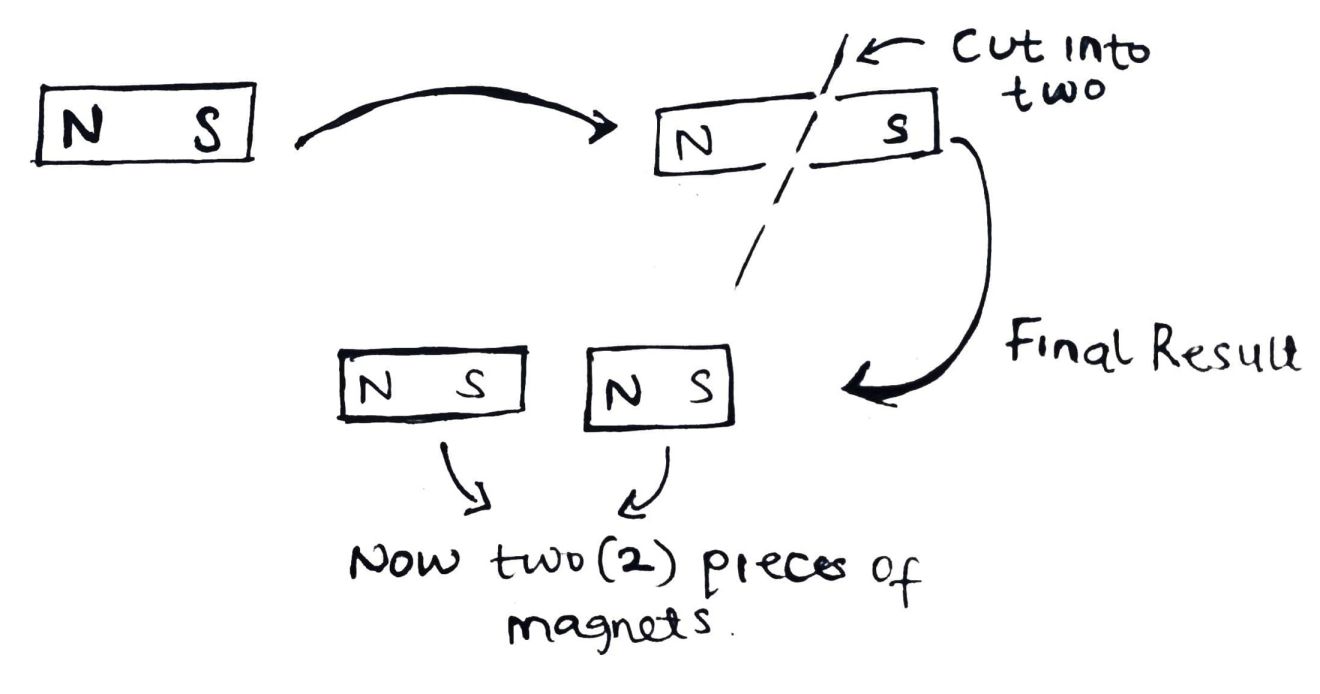 N S
Cut into
two
N S
Final Result
N S
N S
Now two(2) pieces of
magnets.